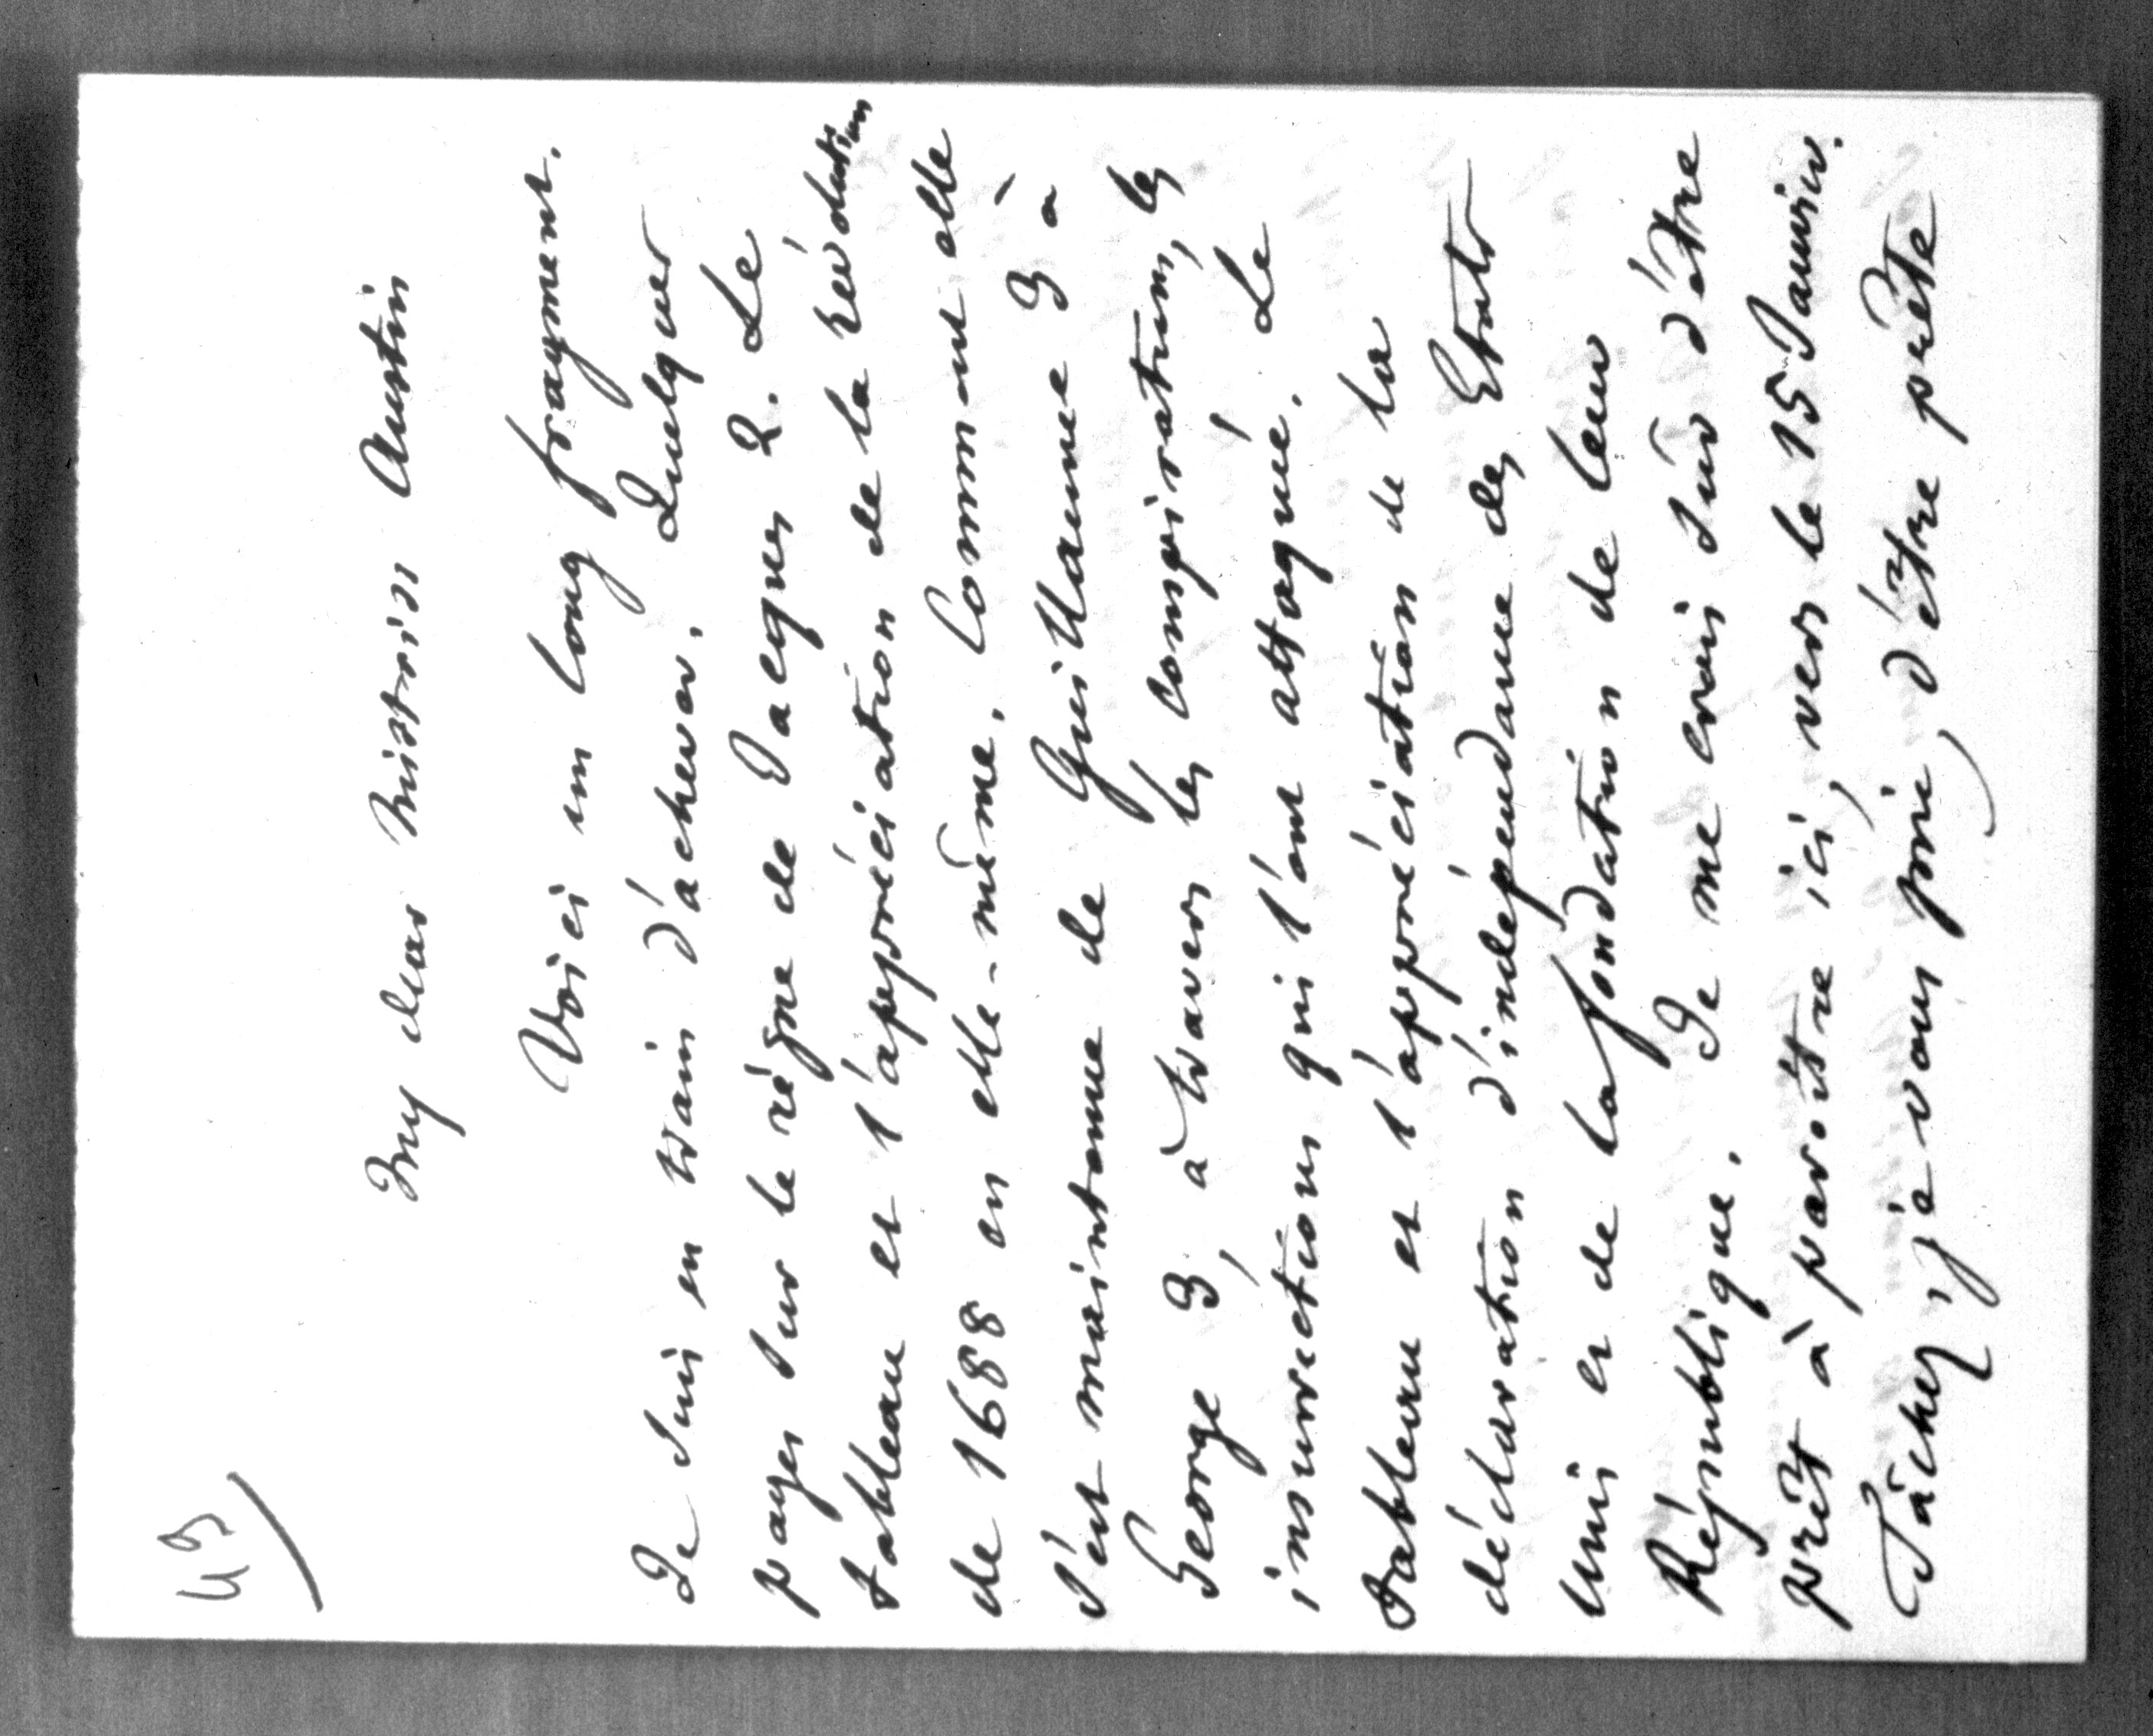 43
My dear Mistriss Austin
Voici un long fragment.
Je suis en train d'achever. Quelques
pages sur le règne de Jacques 2. Le
tableau et l'appréciation de la Révolution
de 1688 en elle-même. Comment elle
s'est maintenue de Guillaume 3 à
George 3, à travers les conspirations, les
insurrections qui l'ont attaqué. Le
tableau et l'appréciation de la
déclaration d'indépendance des Etats
unis et de la fondation de leur
République. Je me crois sûr d'être
prêt à paroître ici, vers le 15 Janvier.
Tâchez, je vous prie, d'être prête